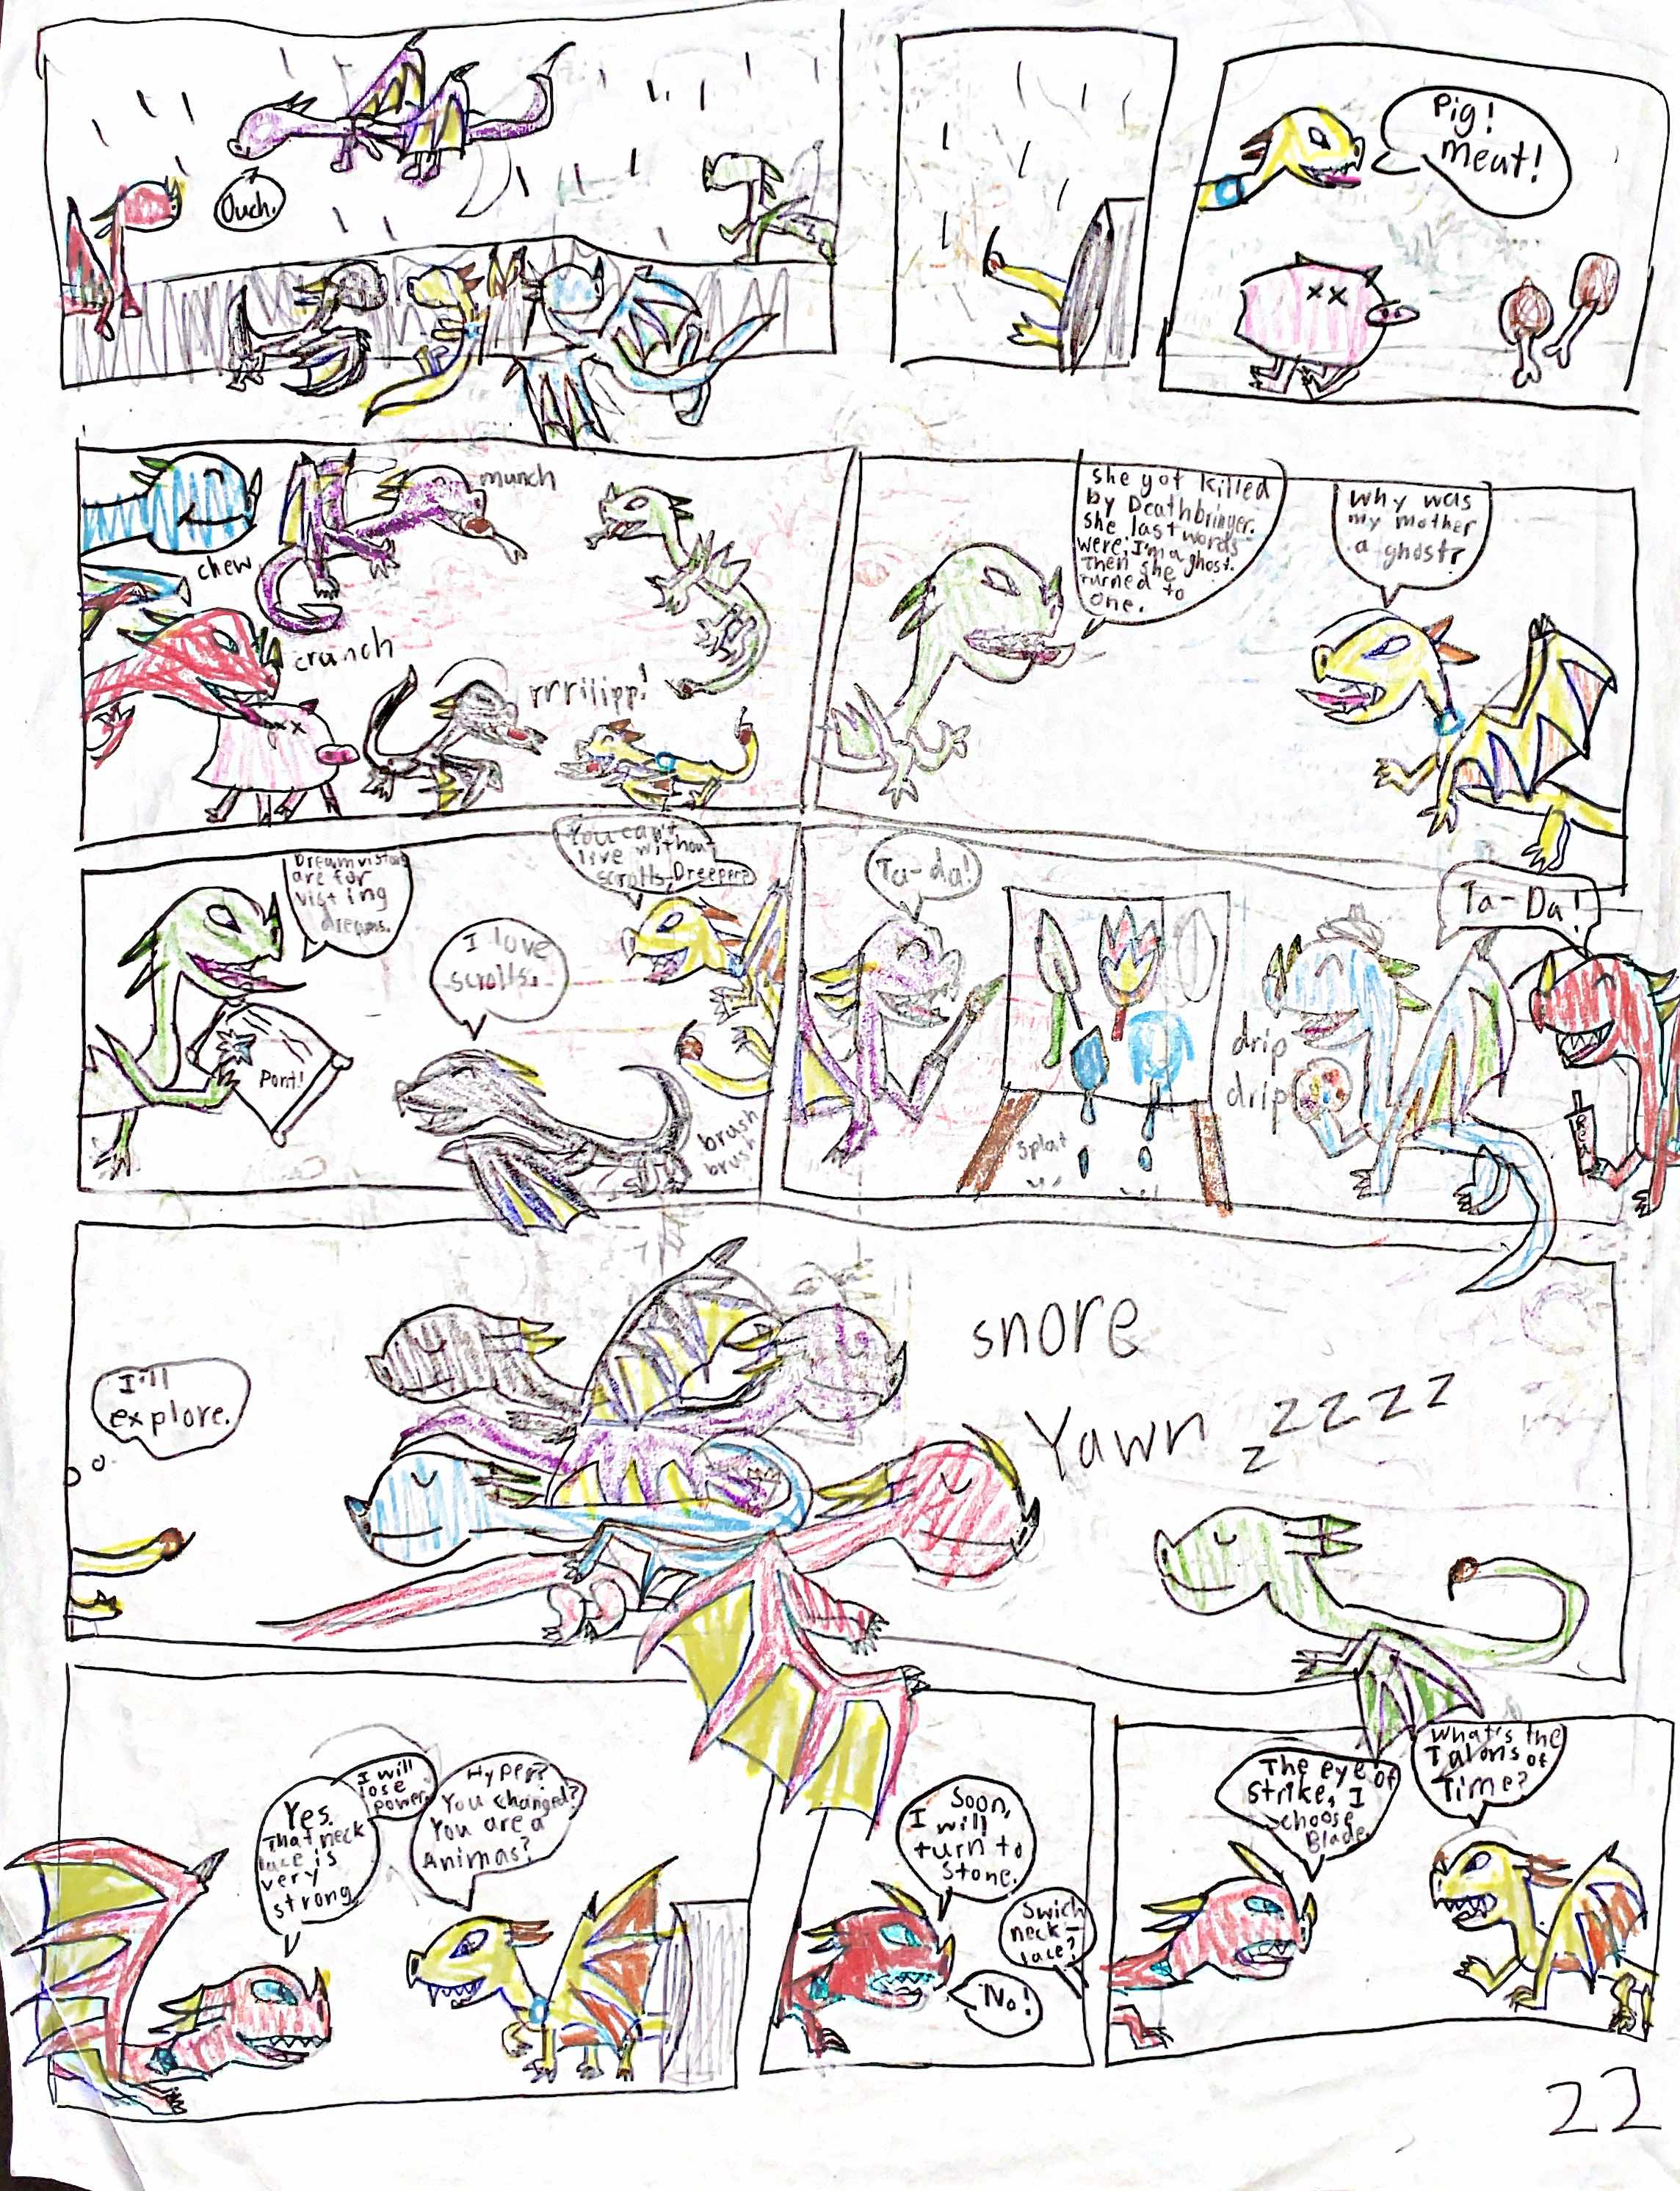 Ouch.
Pig!
Meat!
munch
chew
crunch
rrriiipp!
she got killed
by Deathbringer.
she last words
were; I'm a ghost.
Then she
turned to
one.
why was
my mother
a ghost?
Dreamvistors
are for
visting
dreams.
Pont!
I love
scrolls.
You can't
live without
scrolls, Dreeper?
brush
brush
Ta-da!
splat
drip
drip
Ta-Da!
I'll
explore.
snore
Yawn
zzzzz
Yes.
That neck
lace is
very
strong.
I will
lose
power.
Hyper?
You changed?
You are a
Animas?
Soon,
I will
turn to
stone.
Swich
neck-
lace?
No!
The eye of
Strike, I
choose
Blade.
What's the
Talons of
Time?
22